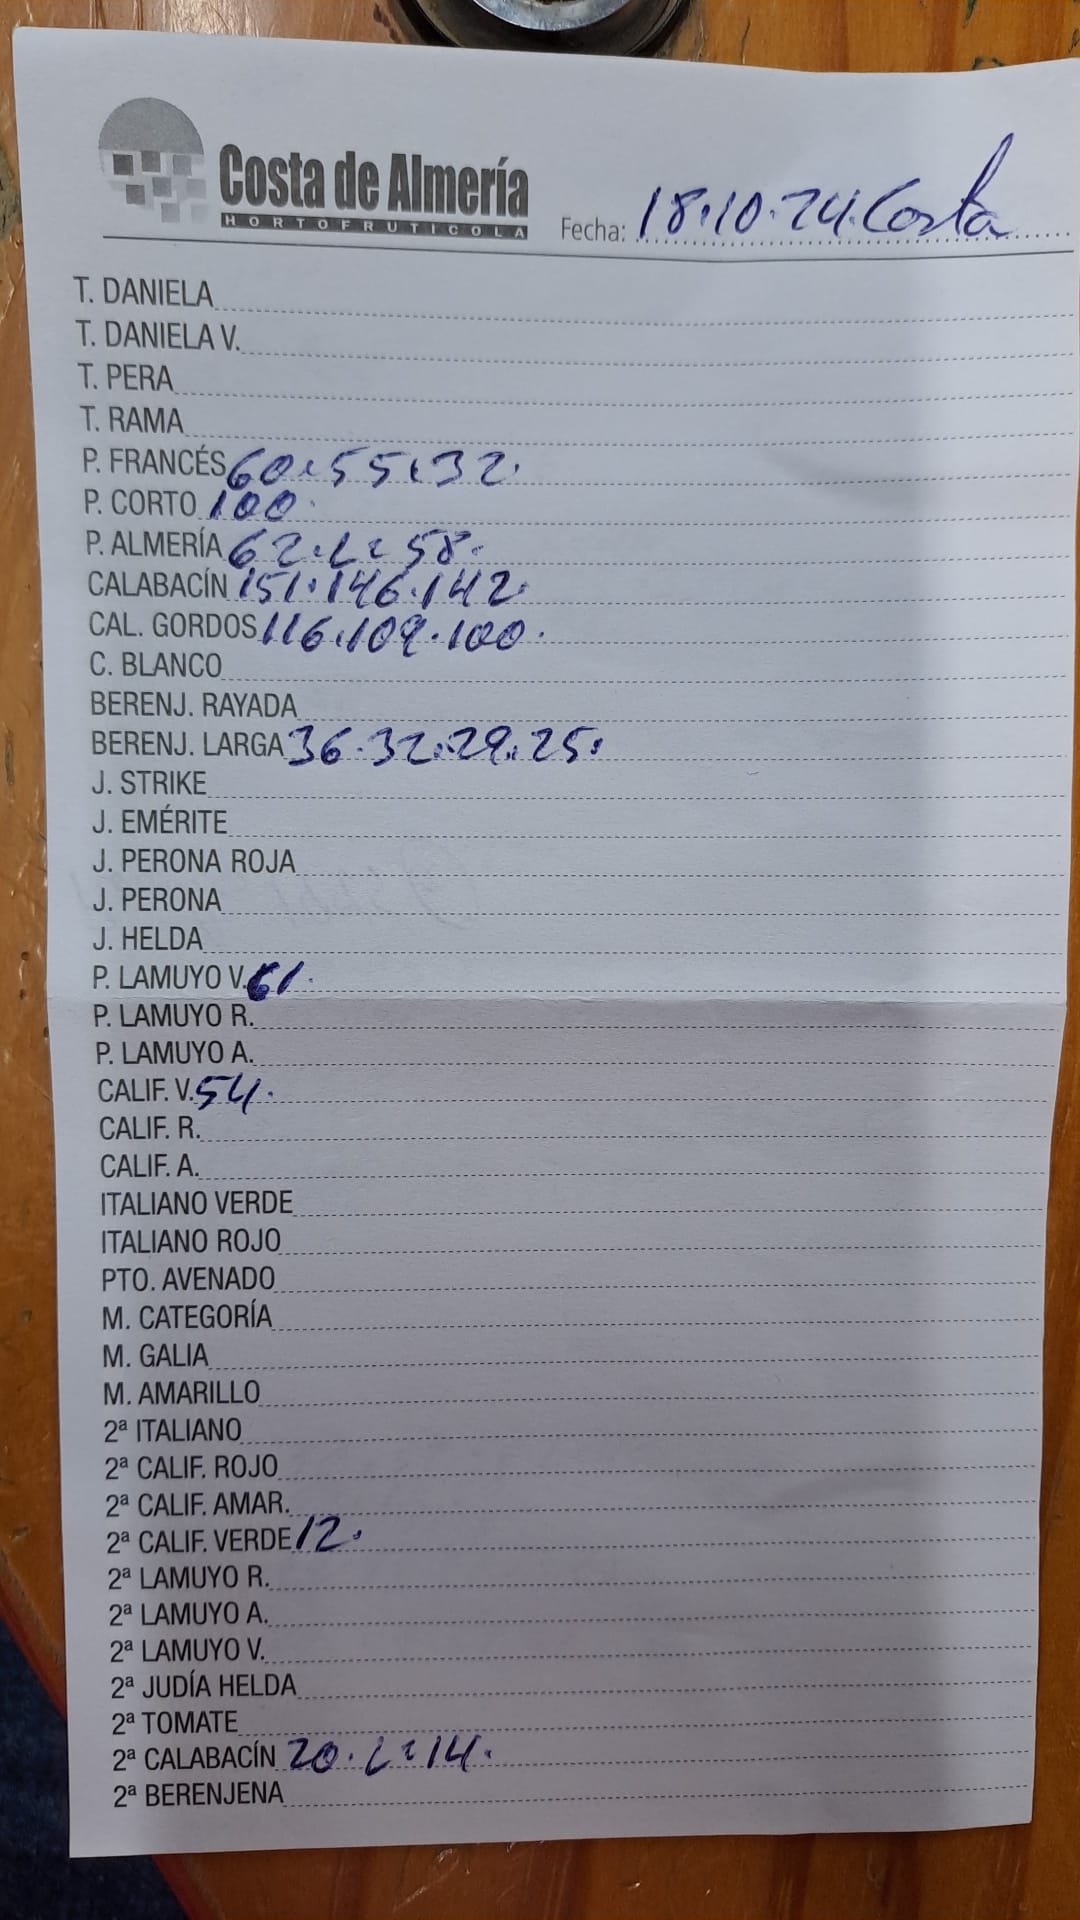 Costa de Almería
HORTOFRUTICOLA
Fecha: 18.10.24. Costa
T. DANIELA
T. DANIELA V.
T. PERA
T. RAMA
P. FRANCÉS 60.55.32.
P. CORTO 100.
P. ALMERÍA 62. L: 58.
CALABACÍN 151.146.142.
CAL. GORDOS 116.109.100.
C. BLANCO
BERENJ. RAYADA
BERENJ. LARGA 36.32.29.25.
J. STRIKE
J. EMÉRITE
J. PERONA ROJA
J. PERONA
J. HELDA
P. LAMUYO V. 61.
P. LAMUYO R.
P. LAMUYO A.
CALIF. V. 54.
CALIF. R.
CALIF. A.
ITALIANO VERDE
ITALIANO ROJO
PTO. AVENADO
M. CATEGORÍA
M. GALIA
M. AMARILLO
2ª ITALIANO
2ª CALIF. ROJO
2ª CALIF. AMAR.
2ª CALIF. VERDE 12.
2ª LAMUYO R.
2ª LAMUYO A.
2ª LAMUYO V.
2ª JUDÍA HELDA
2ª TOMATE
2ª CALABACÍN 20. L: 14.
2ª BERENJENA